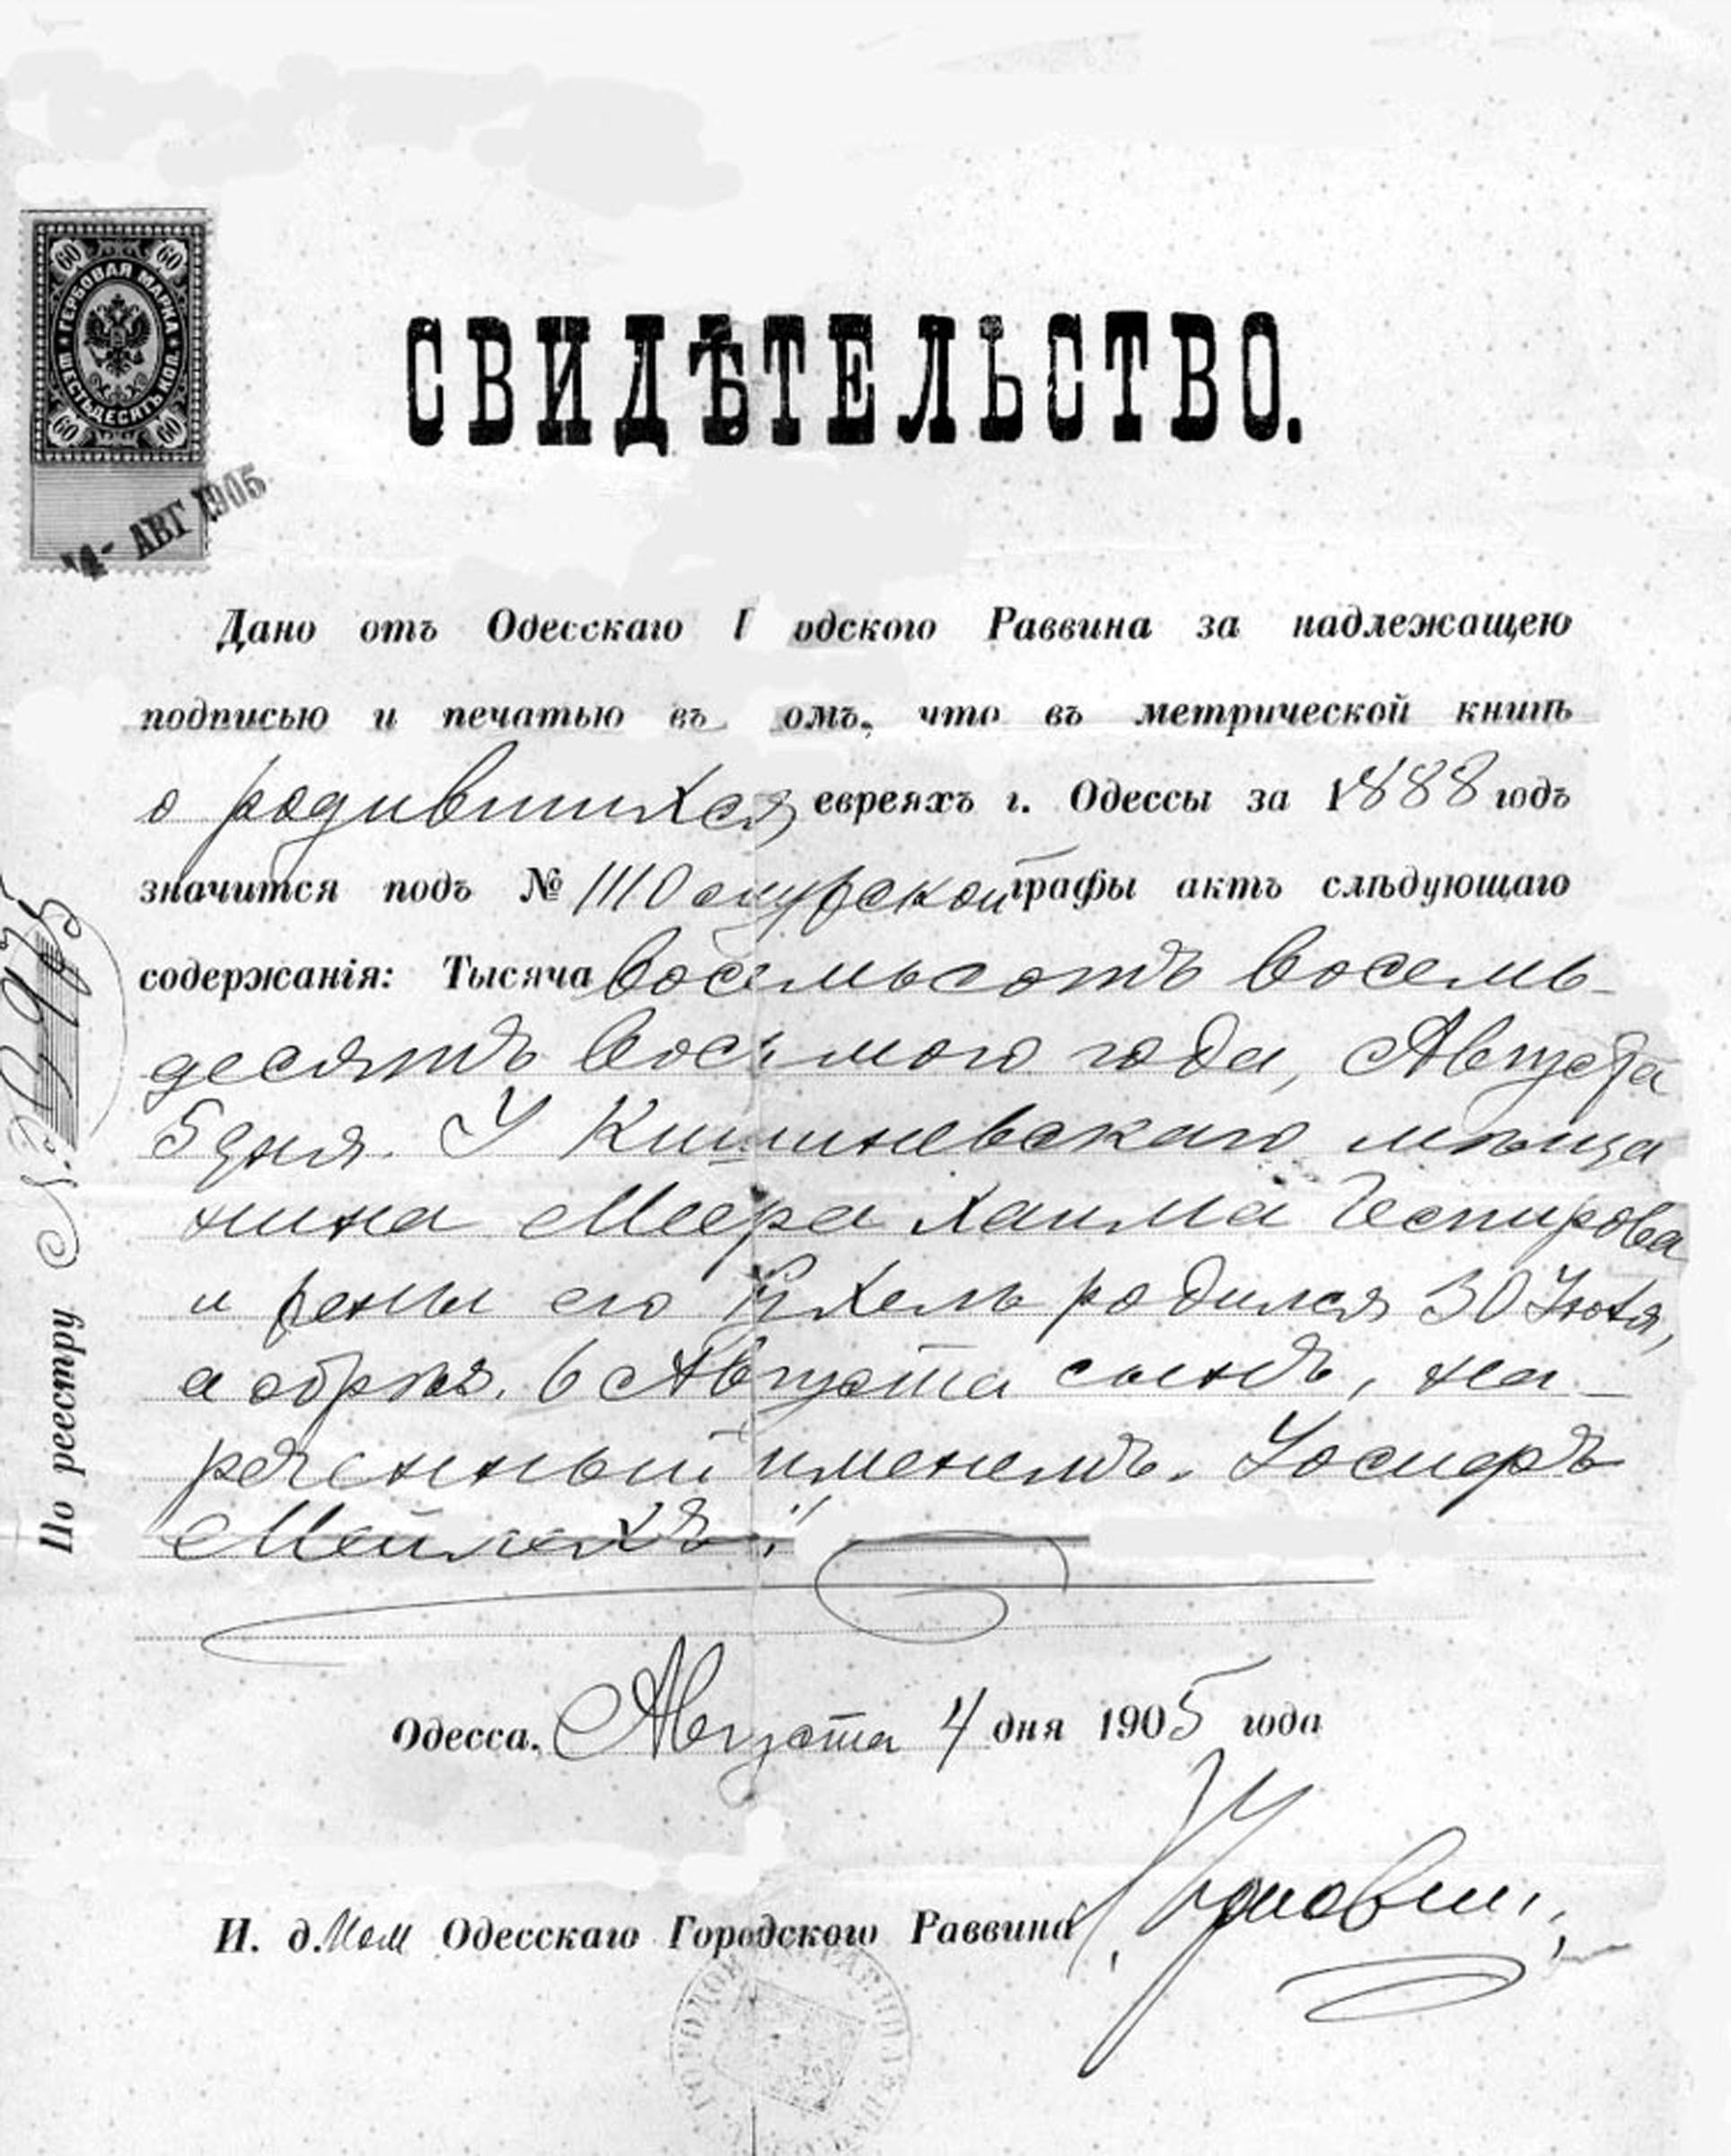 60 60
ГЕРБОВАЯ МАРКА
ШЕСТЬДЕСЯТЪ КОП.
60 60
4- АВГ 1905
СВИДѢТЕЛЬСТВО.
Дано отъ Одесскаго Г одского Раввина за надлежащею
подписью и печатью въ омъ, что въ метрической книгѣ
о родившихся евреяхъ г. Одессы за 1888 годъ
значится подъ № 1110 мужской графы актъ слѣдующаго
содержанія: Тысяча восемьсотъ восемь-
десятъ восьмого года, Августа
5 дня. У Кишиневскаго мѣща
нина Меера Хаима
и жены его родился 30 Іюля,
а обрѣз. 6 Августа сынъ, на-
реченный именемъ. Іосифъ
Мейлехъ."
Одесса. Августа 4 дня 1905 года
И. д. Пом Одесскаго Городского Раввина
По реестру №